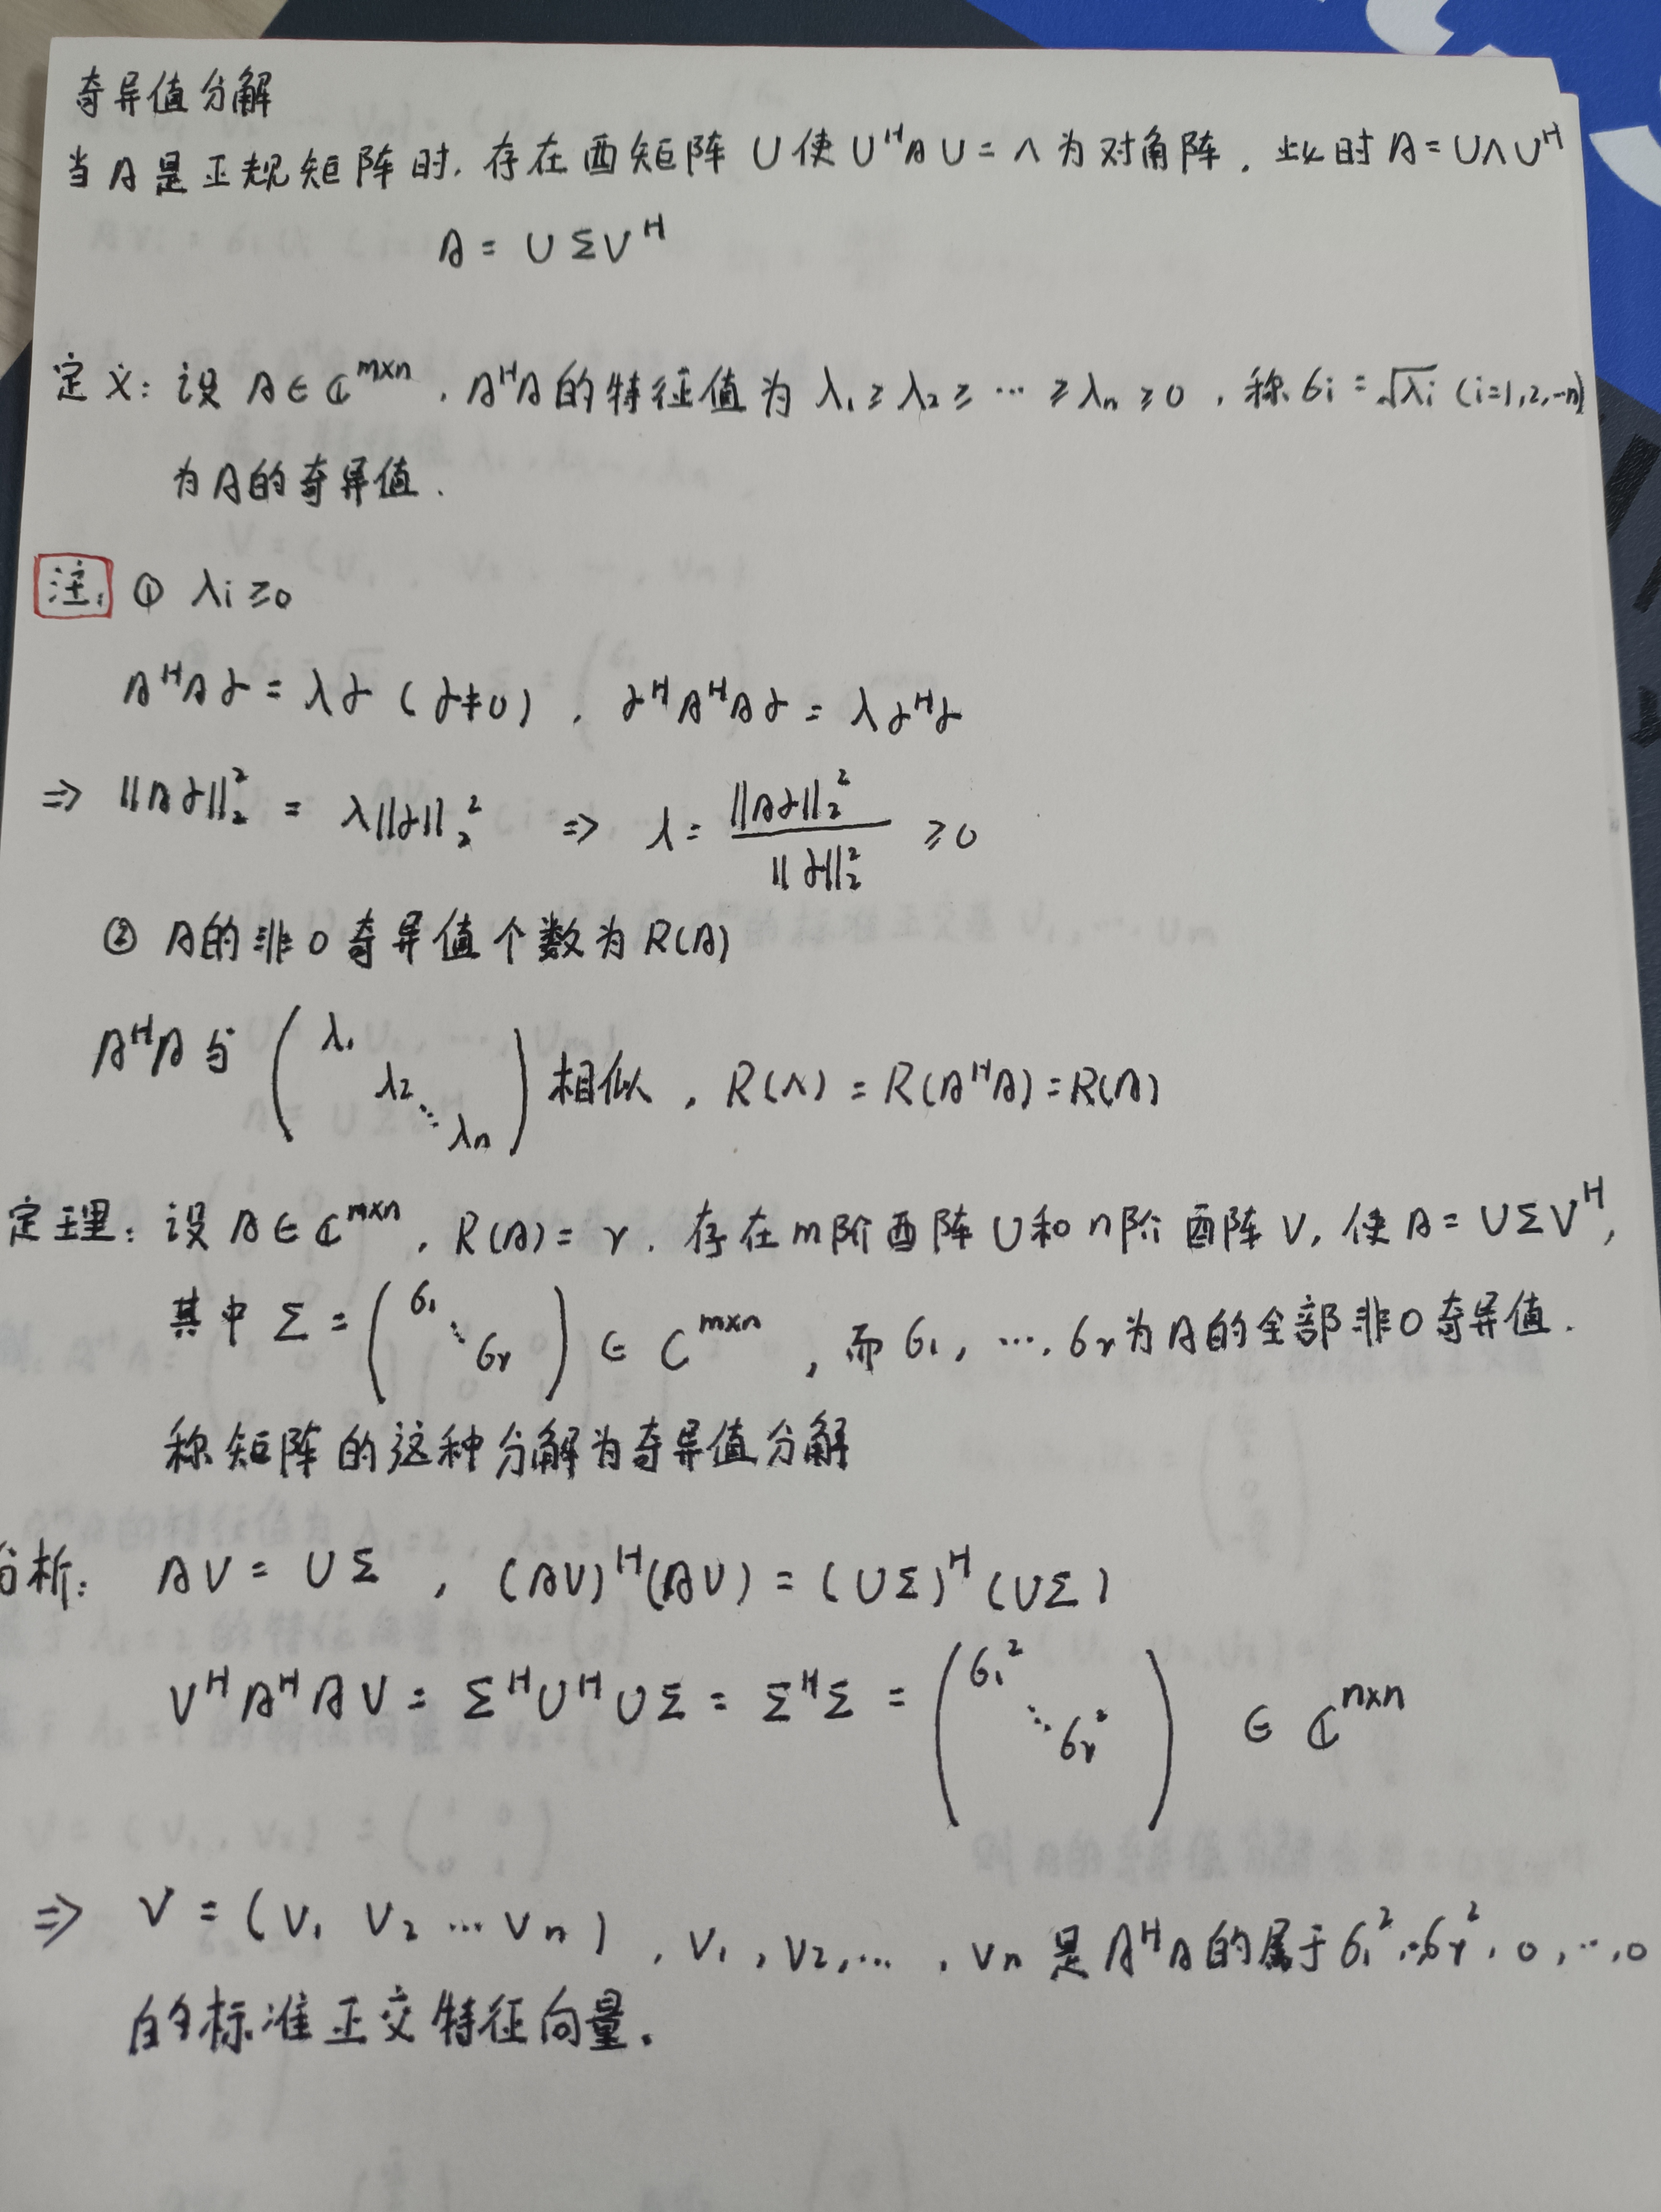 奇异值分解
当A是正规矩阵时,存在酉矩阵U使UᴴAU=Λ为对角阵.此时A=UΛUᴴ
A=UΣVᴴ
定义:设A∈ℂᵐˣⁿ,AᴴA的特征值为λ₁≥λ₂≥…≥λₙ≥0,称σᵢ=√λᵢ (i=1,2,…n)
为A的奇异值.
注: ① λᵢ≥0
AᴴAα=λα(α≠0), αᴴAᴴAα=λαᴴα
⇒ ‖Aα‖₂²=λ‖α‖₂² ⇒ λ=‖Aα‖₂²/‖α‖₂² ≥0
② A的非0奇异值个数为R(A)
AᴴA与(λ₁ λ₂ ⋱ λₙ)相似, R(Λ)=R(AᴴA)=R(A)
定理:设A∈ℂᵐˣⁿ, R(A)=r.存在m阶酉阵U和n阶酉阵V,使A=UΣVᴴ,
其中Σ=(σ₁ ⋱ σᵣ)∈Cᵐˣⁿ,而σ₁,…,σᵣ为A的全部非0奇异值.
称矩阵的这种分解为奇异值分解
分析: AV=UΣ, (AV)ᴴ(AV)=(UΣ)ᴴ(UΣ)
VᴴAᴴAV=ΣᴴUᴴUΣ=ΣᴴΣ=(σ₁² ⋱ σᵣ²)∈ℂⁿˣⁿ
⇒ V=(v₁ v₂ … vₙ), v₁,v₂,…,vₙ是AᴴA的属于σ₁²,…σᵣ²,0,…,0
的标准正交特征向量.